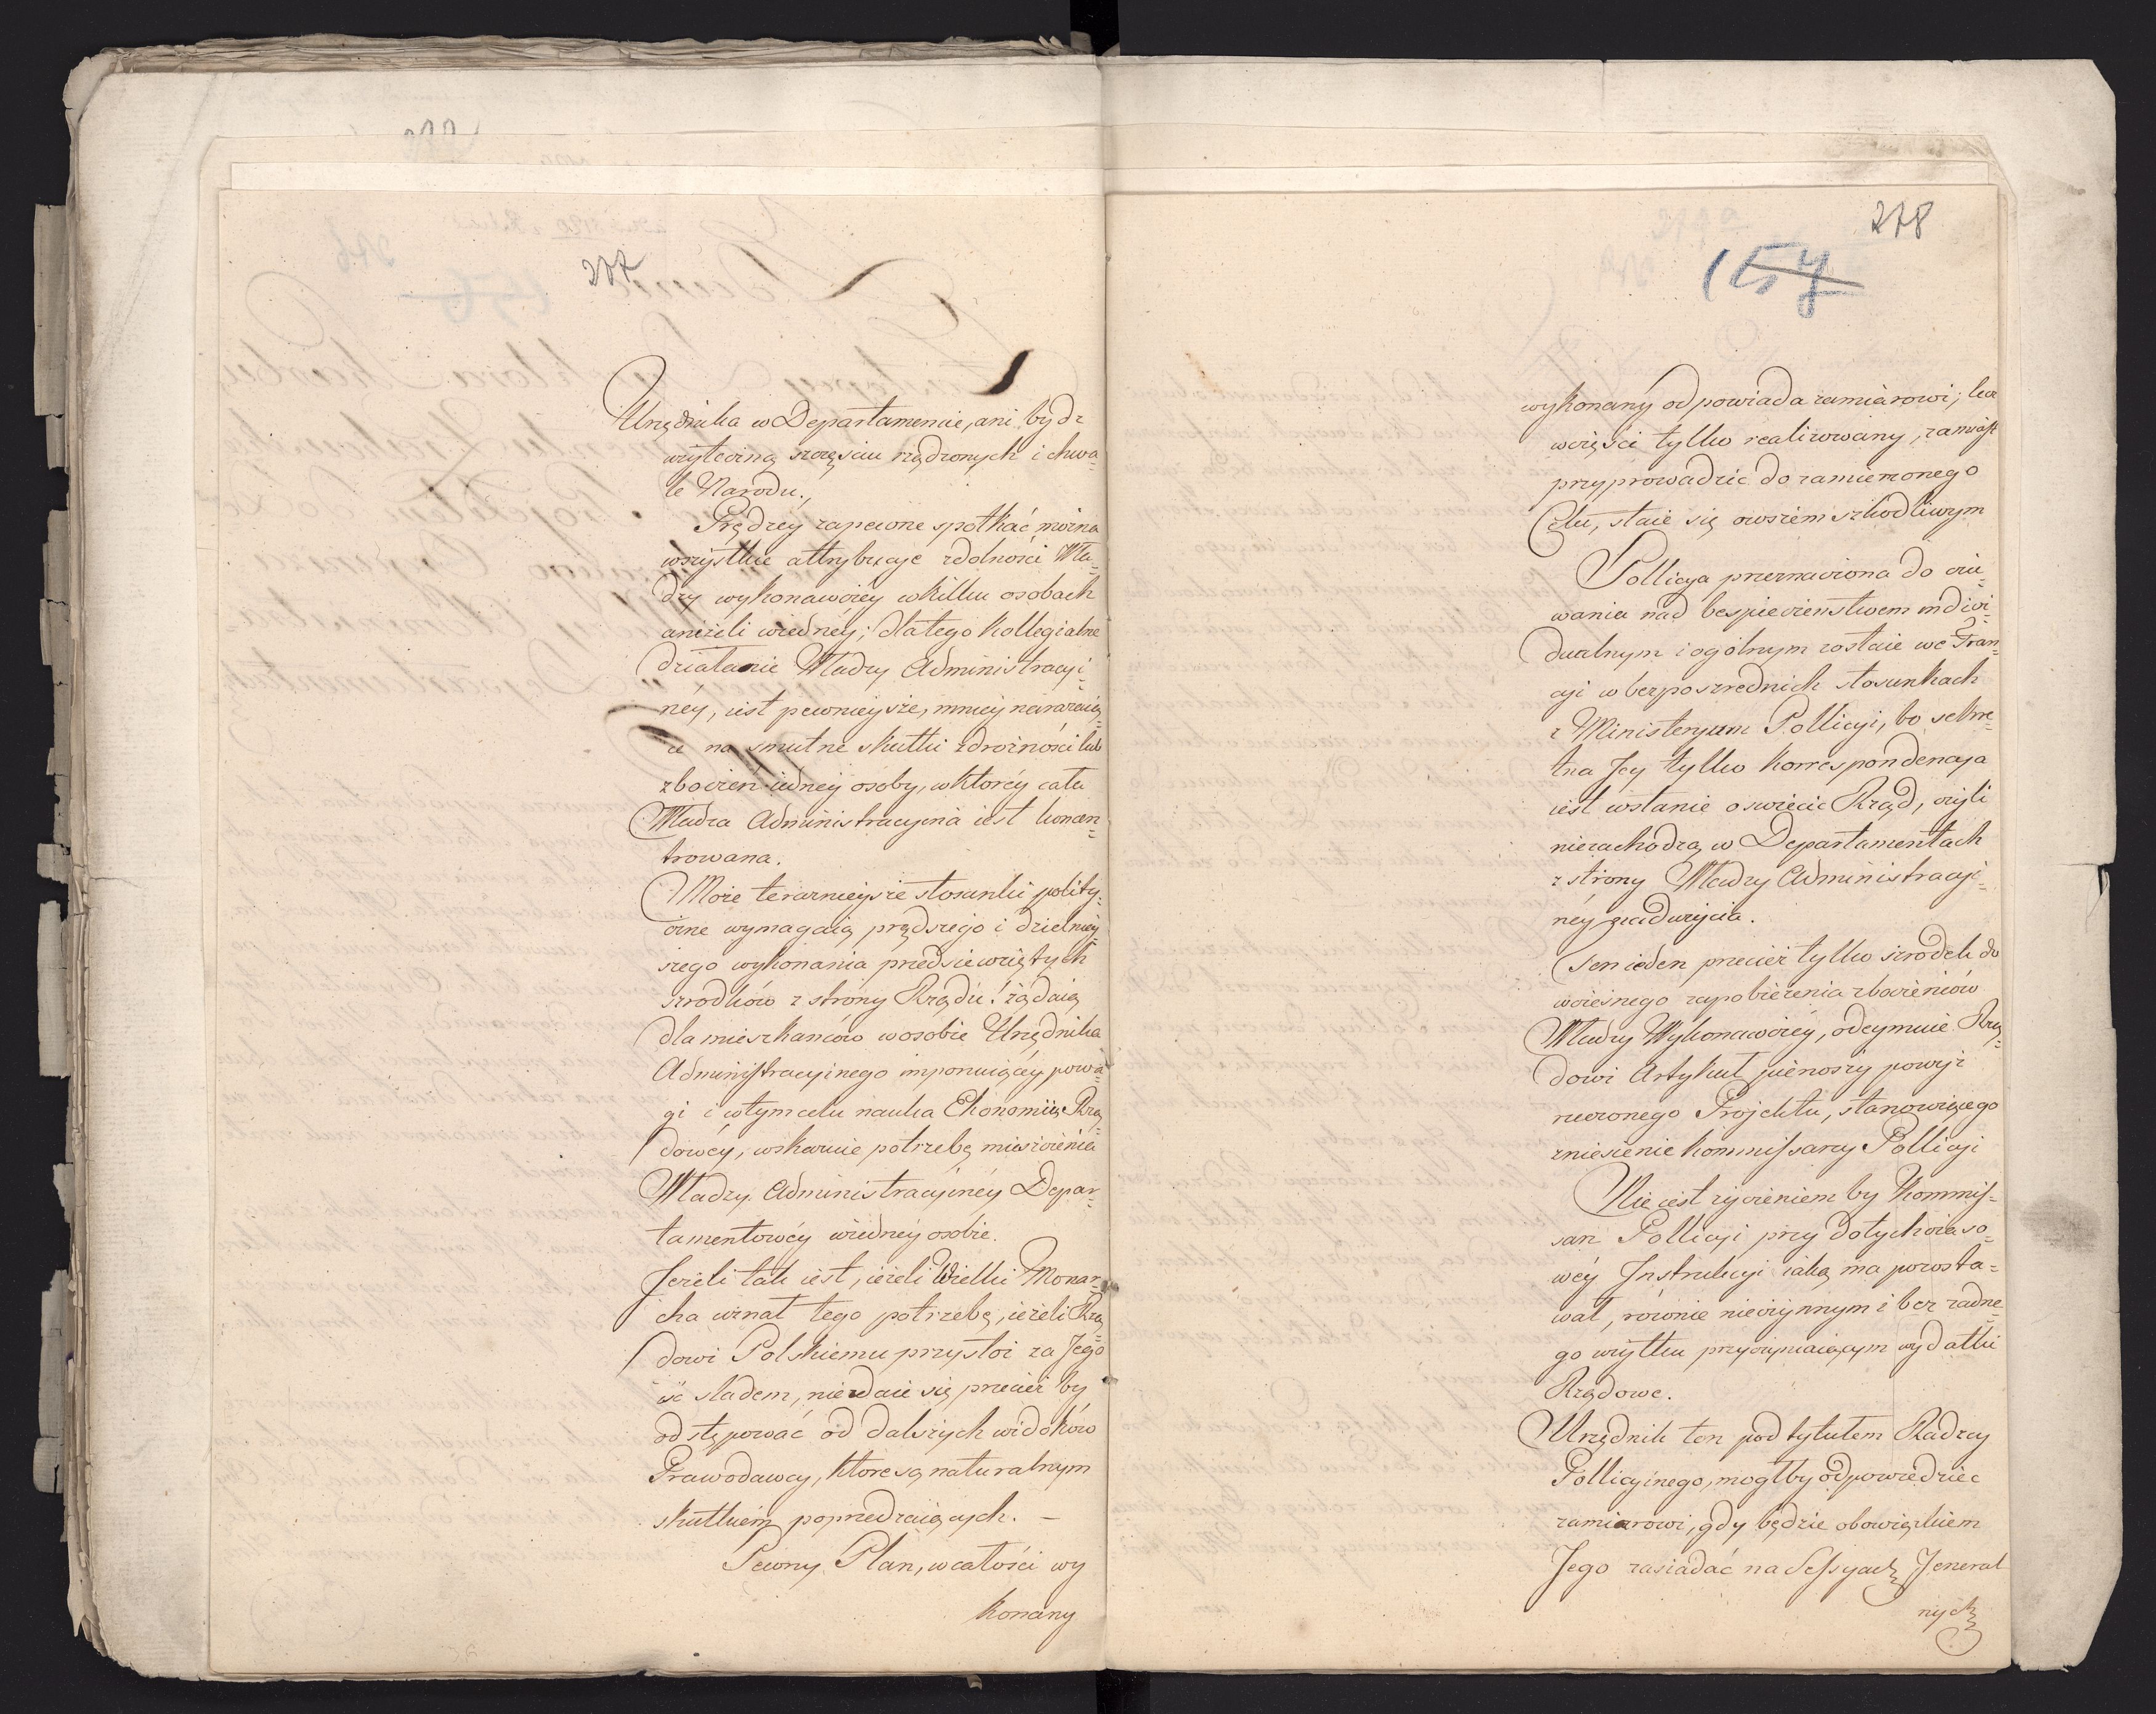 277
Urzędnika w Departamencie, ani bydz
użyteczną szczęściu rządzonych i chwa=
le Narodu.,
Prędzey zapewne spotkać można
wszystkie attrybucye zdolności Wła=
dzy wykonawczéy w kilku osobach
aniżeli wiednéy; dlatego Kollegialne
działanie Władzy Administracyi=
néy, iest pewnieysze, mniey narażaią=
ce na smutne skutki zdrożności lub
zboczeń iedney osoby, w ktoréy cała
Władza Administracyina iest koncen=
trowana.
Może terażnieysze stosunki polity=
czne wymagaią prędszego i dzielniey=
szego wykonania przedsięwziętych
szrodków z strony Rządu! żądaią
dla mieszkanców w osobie Urzędnika
Administracyinego imponuiącéy powa=
gi i w tym celu nauka Ekonomii Rzą=
dowéy, wskazuie potrzebę mieszczenia
Władzy Administracyinéy Depar=
tamentowéy wiednéy osobie.
Jeżeli tak iest, ieżeli Wielki Monar=
cha uznał tego potrzebę, ieżeli Rzą=
dowi Polskiemu przystoi za Jego
iść sladem, niezdaie się przecież by
odstępować od dalszych widoków
Prawodawcy, które są naturalnym
skutkiem poprzedzaiących. –
Pewny Plan, w całości wy
konany
278
157
wykonany odpowiada zamiarowi; lecz
wczęści tylko realizowany, zamiast
przyprowadzić do zamierzonego
Celu, staie się owszem szkodliwym
Pollicya przeznaczona do czu=
wania nad bespieczenstwem indiwi=
dualnym i ogólnym zostaie we Fran=
cyi w bezposzrednich stosunkach
z Ministeryum Pollicyi, bo sekre=
tna Jey tylko korrespondencya
iest wstanie oswiecić Rząd, czyli
niezachodzą w Departamentach
z strony Władzy Administracyi=
néy nadużycia.
Ten ieden przecież tylko szrodek do
wczesnego zapobieżenia zboczeniów
Władzy Wykonawczéy, odeymuie Rzą=
dowi Artykuł pierwszy powyż
rzeczonego Projektu, stanowiącego
zniesienie kommissarzy Pollicyi
Nie iest życzeniem by Kommis=
sarz Pollicyi przy dotychczaso=
wéy Instrukcyi iaką ma pozosta=
wał, rownie nieczynnym i bez żadne=
go użytku przyczyniaiącym wydatki
Rządowe.
Urzędnik ten pod tytułem Radzcy
Pollicyinego, mogłby odpowiedzieć
zamiarowi, gdy będzie obowiązkiem
Jego zasiadać na Sessyach Jeneral
nych